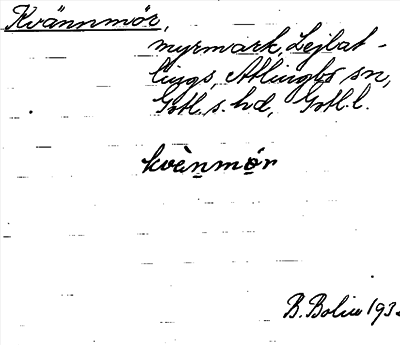 Kvännmör,
myrmark, Lejlat-
lings, Atlingbo sn,
Gotl. s. hd, Gotl. l.
kvènmör
B. Bolin 193